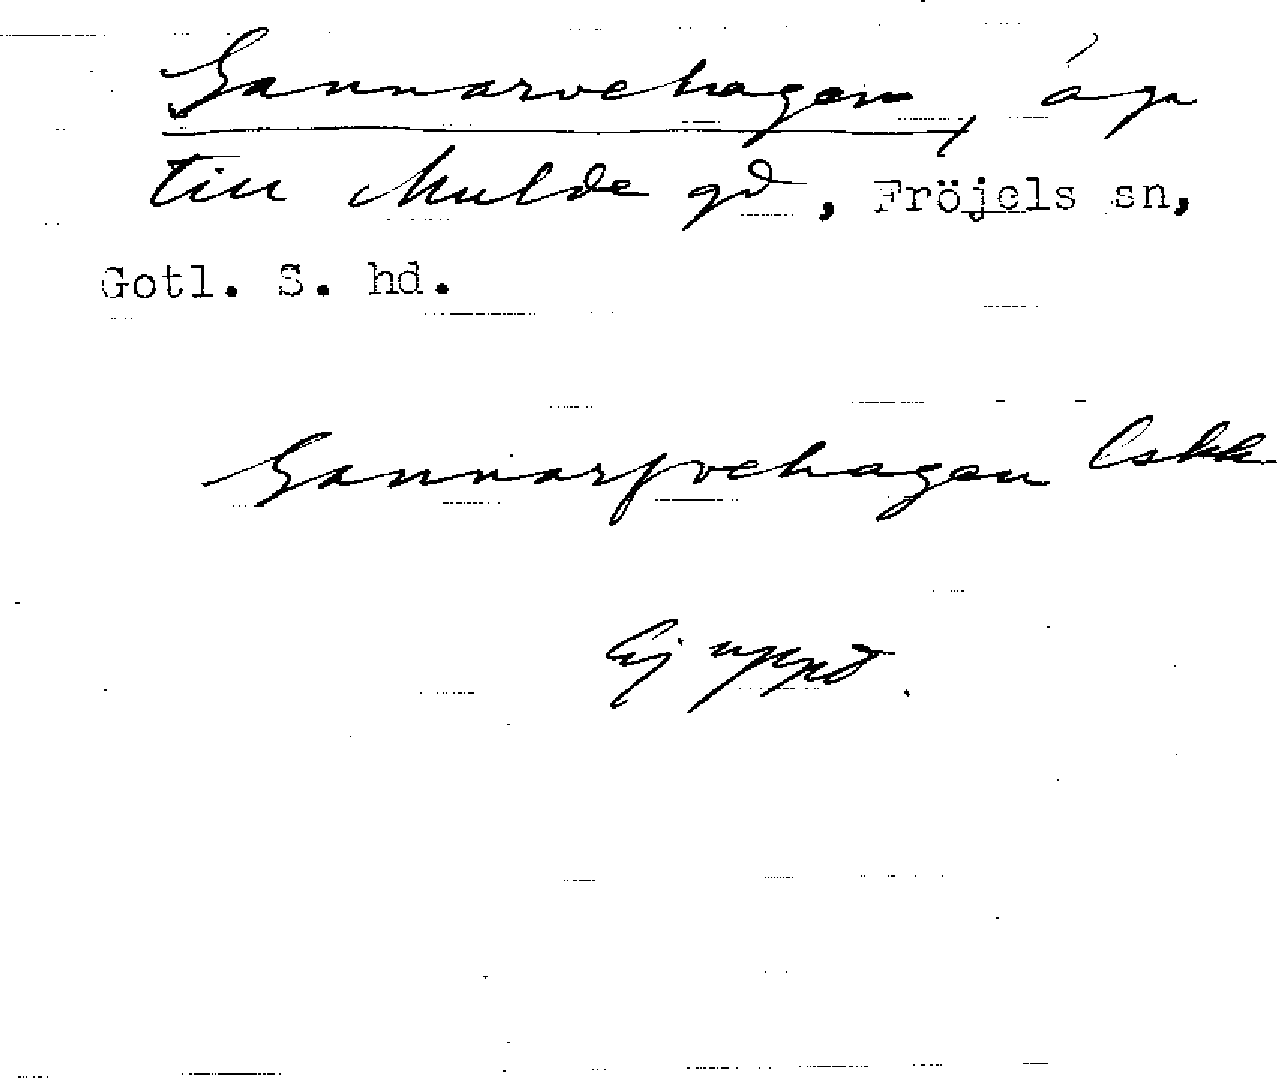 Gannarvehagen, äga
till Mulde gd, Fröjels sn,
Gotl. S. hd.
Gannarfvehagen Eskk
Ej uppt.